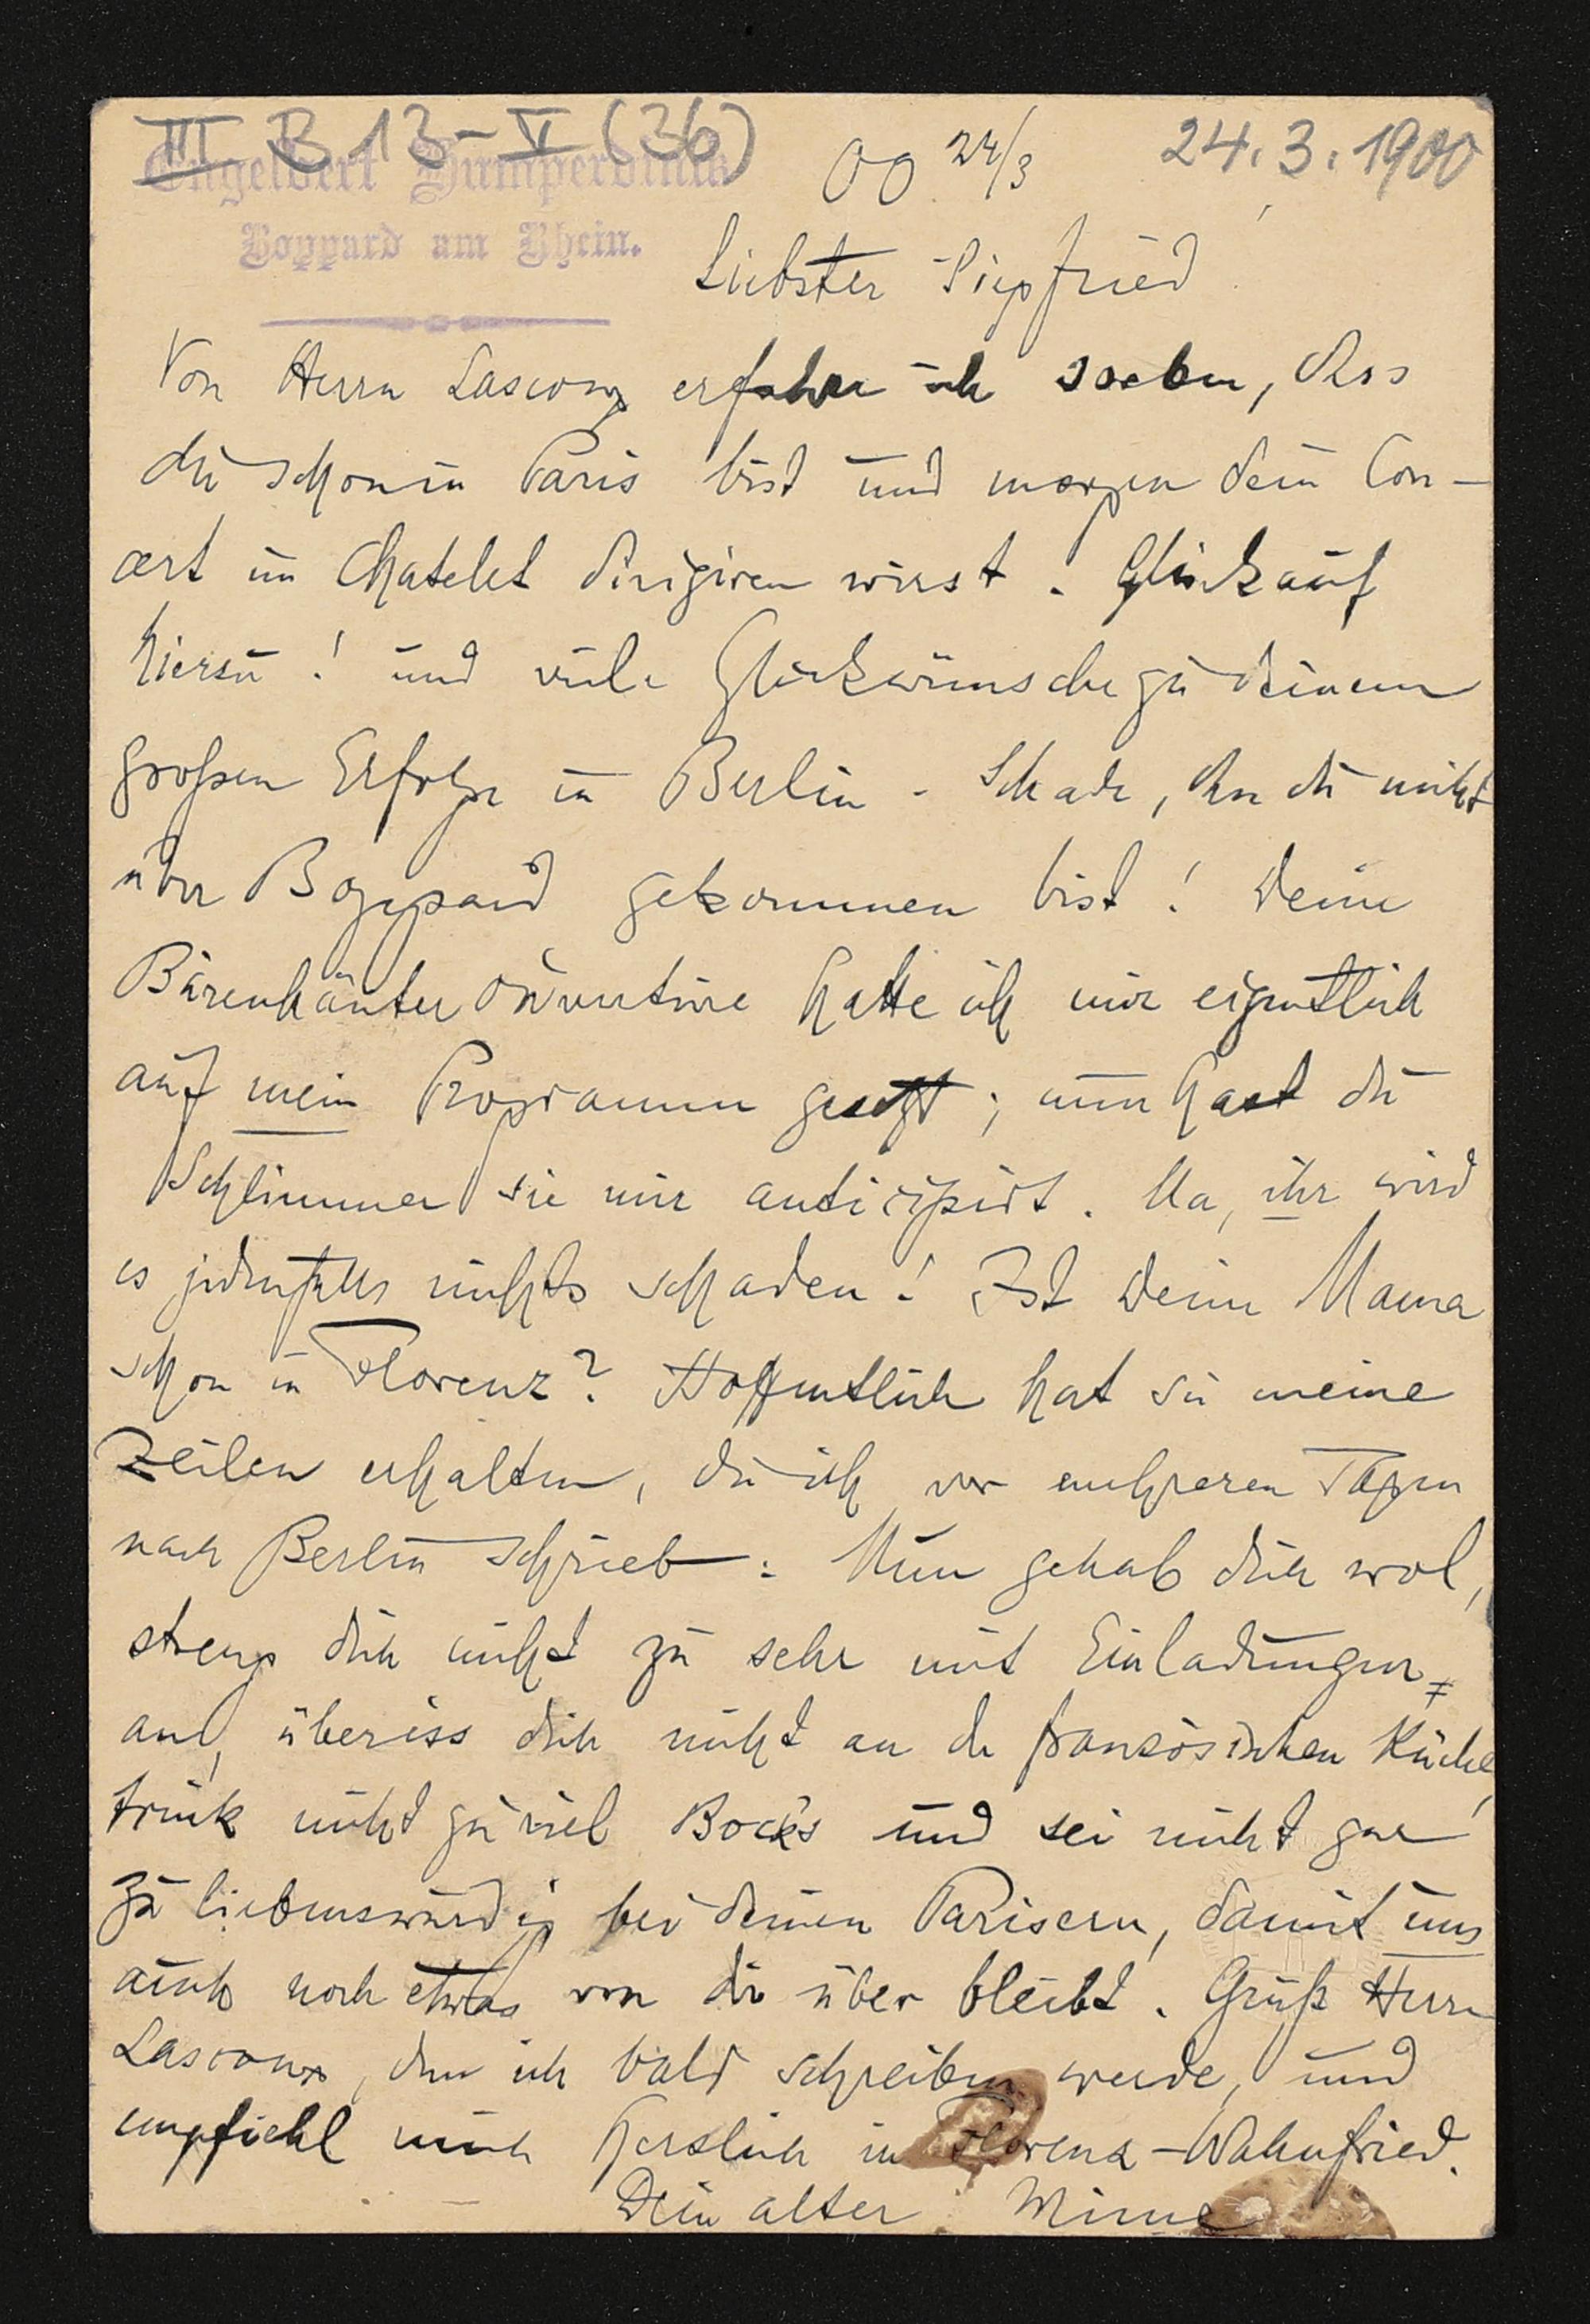 III B 13-V (36)
Engelbert Humperdinck
Boppard am Rhein.
00 24/3
24.3.1900
Liebster Siegfried!
Von Herrn Lascoux erfahre ich soeben, dass
du schon in Paris bist und morgen dein Con-
cert im Chatelet dirigiren wirst. Glückauf
hierzu! und viele Glückwünsche zu deinem
großen Erfolge in Berlin - Schade, dass du nicht
über Boppard gekommen bist! Deine
Bärenhäuter Ouvertüre hatte ich mir eigentlich
auf mein Programm gesetzt; nun hast du
Schlimmer sie mir anticipirt. Na, ihr wird
es jedenfalls nichts schaden! Ist Deine Mama
schon in Florenz? Hoffentlich hat sie meine
Zeilen erhalten, die ich vor mehreren Tagen
nach Berlin schrieb. Nun gehab dich wol,
streng dich nicht zu sehr mit Einladungen
an, überiss dich nicht an der französischen Küche,
trink nicht zu viel Bocks und sei nicht gar
zu liebenswürdig bei deinen Parisern, damit uns
auch noch etwas von dir über bleibt. Grüß Herrn
Lascoux, dem ich bald schreiben werde, und
empfiehl mich herzlich in Florenz-Wahnfried.
Dein alter Mime